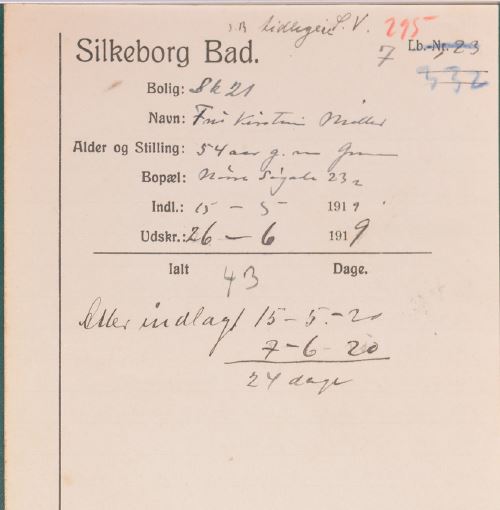 tidligere S. V. 295
Silkeborg Bad. 7 Lb.-Nr. 23
332
Bolig: Sk 21
Navn: Fru Kirstine Møller
Alder og Stilling: 54 aar g. m
Bopæl: Nørre 23
Indl.: 15 — 5 1919
Udskr.: 26 — 6 1919
Ialt 43 Dage.
Atter indlagt 15 – 5 – 20
7 – 6 – 20
24 dage